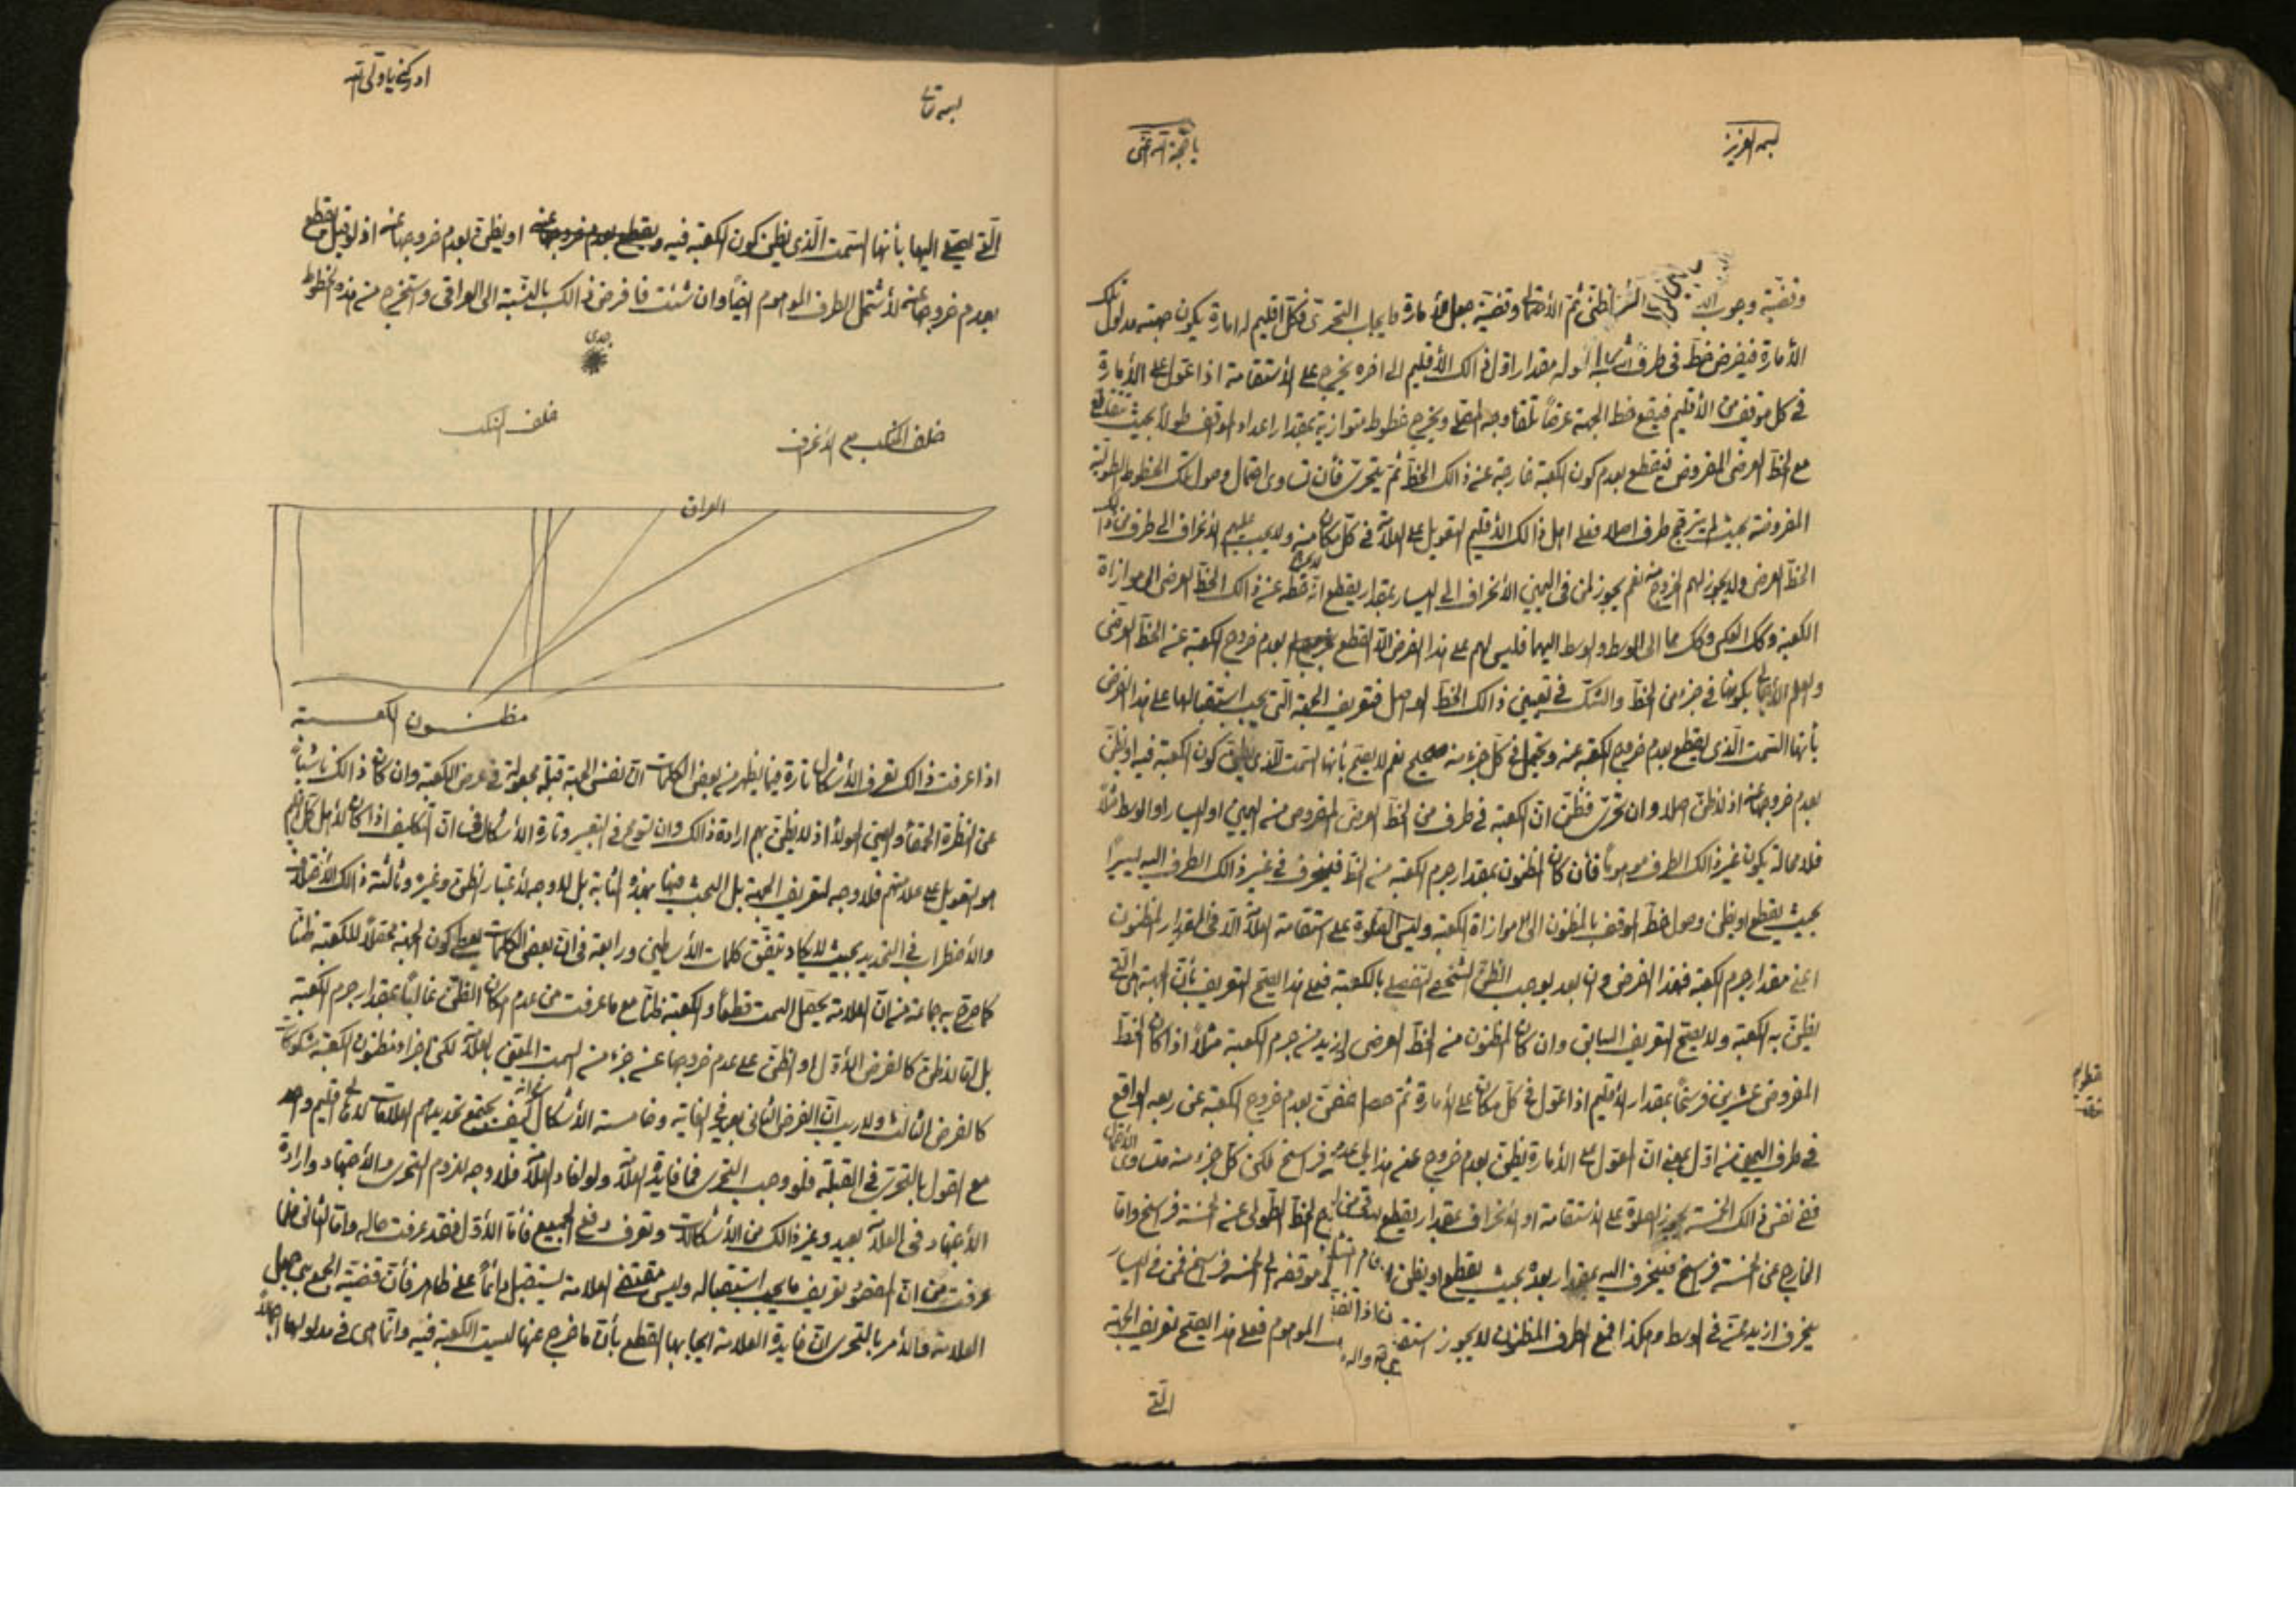 بسمه العزيز
يا حجة الله اغثني
وقضية وجوب ثم الأخذ وقضية جعل الأمارة ما يجاب التحري فكل اقليم له امارة يكون جهته مدلول تلك
الأمارة فيفرض خط في طرف مقدار اول ذالك الأقليم الى اخره يخرج على الأستقامة اذا عول على الأمارة
في كل موقف من الأقليم فيقع خط الجهة عرضاً تلقاء وجه المصلي ويخرج خطوط متوازية بمقدار اعداد المواقف طولاً بحيث تتقاطع
مع الخط العرضي المفروض فيقطع بعدم كون الكعبة خارجة عن ذالك الخط ثم يتحرى فأن تساوى احتمال وصول تلك الخطوط الطولية
المفروضة بحيث لم يترجح طرف اصلا فعلى اهل ذالك الأقليم التعويل على العلامة في كل مكان منه ولا يجب عليهم الأنحراف الى طرف من ذالك
الخط العرضي ولا يجوز لهم الخروج منه نعم يجوز لمن في اليمين الأنحراف الى اليسار بمقدار يقطع انه خطه عن ذالك الخط العرضي الى موازاة
الكعبة وكك العكس وكك مما الى الوسط والوسط اليهما فليس لهم على هذا الفرض الا القطع بعدم خروج الكعبة عن الخط العرضي
والعلم الأجمالي بكونها في جزء من الخط والشك في تعيين ذالك الخط الواصل فتعريف الجهة التي يجب استقبالها على هذا الفرض
بأنها السمت الذي يقطع بعدم خروج الكعبة عنه ويحتمل في كل جزء منه صحيح نعم لا يصح بأنها السمت الذي يظن كون الكعبة فيه او يظن
بعدم خروجها عنه اذ لا ظن اصلا وان تحرى فظن ان الكعبة في طرف من الخط العرضي المفروض منه اليمين او اليسار او الوسط مثلاً
فلا محالة يكون غير ذالك الطرف موهوماً فأن كان المظنون بمقدار جرم الكعبة من الخط فينحرف في غير ذالك الطرف اليه يسيراً
بحيث يقطع او يظن وصول خط الموقف بالمظنون الى موازاة الكعبة وليس الصلوة على استقامة العلامة الا في المقدار المظنون
اعني مقدار جرم الكعبة فهذا الفرض وان بعد يوجب الظن الشخصي التفصيلي بالكعبة فعلى هذا يصح التعريف بأن الجهة هي التي
يظن به الكعبة ولا يصح التعريف السابق وان كان المظنون من الخط العرضي ازيد من جرم الكعبة مثلاً اذا كان الخط
المفروض عشرين فرسخاً بمقدار الأقليم اذا عول في كل مكان على الأمارة ثم حصل بعدم خروج الكعبة عن ربعه الواقع
في طرف اليمين منه اول يعني ان المعول على الأمارة يظن بعدم خروج عنه هذا الى فراسخ لكن كل جزء منه متساوى الأحتمال
ففي نفس ذالك الخمسة يجوز الصلوة على الأستقامة او الأنحراف بمقدار يقطع الخط الطولي عن الخمسة فراسخ واما
الخارج عن الخمسة فراسخ فينحرف اليه بمقدار بعده بحيث يقطع او يظن موقفه الى الخمسة فراسخ فمن في اليسار
ينحرف ازيد ممن في الوسط وهكذا فمع الطرف المظنون لا يجوز الموهوم فعلى هذا يصح تعريف الجهة
التي
بسمه تعالى
ادركني يا ولي الله
التي يصلي اليها بأنها السمت الذي يظن كون الكعبة فيه او يظن بعدم خروجها عنه اذ لو قيل يقطع
بعدم خروجها عنه لأشتمل الطرف الموهوم ايضاً وان شئت فافرض ذالك بالنسبة الى العراقي واستخرج من هذه الخطوط
جدى
خلف المنكب مع الأنحراف
خلف المنكب
العراق
مظنون الكعبة
اذا عرفت ذالك تعرف الأشكال تارة فيما يظهر من بعض الكلمات ان نفس الجهة قبلة مجعولة في عرض الكعبة وان كان ذالك ناشياً
عن النظرة الحمقاء والعين الحولاء اذ لا يظن بهم ارادة ذالك وان توسع في التعبير وتارة الأشكال في ان التكليف اذا كان لأهل كل اقليم
هو التعويل على علامتهم فلا وجه لتعريف الجهة بل البحث عنها بل لا وجه لأعتبار الظن وغيره وثالثة ذالك الأختلاف
والأضطراب في التحديد بحيث لا يكاد يتفق كلمات الأساطين ورابعة في ان بعض الكلمات يعطي كون الجهة محصلاً للكعبة ظناً
كما صرح به جماعة من ان العلامة يحصل السمت قطعاً والكعبة ظناً مع ما عرفت من عدم امكان الظن غالباً بمقدار جرم الكعبة
بل اما لا ظن كالفرض الأول او الظن على عدم خروجها عن جزء من السمت المتيقن بالعلامة لكن اجزاء مظنون الكعبة مشكوك
كالفرض الثالث ولا ريب ان الفرض الثاني بعيد في الغاية وخامسة الأشكال في انه كيف يجتمع تحديدهم العلامات لأهل اقليم واحد
مع القول بالتحرى في القبلة فلو وجب التحرى فما فايدة العلامة ولو افاد العلامة فلا وجه للزوم التحرى والأجتهاد وارادة
الأجتهاد في العلامة بعيد وغير ذالك من الأشكالات وتعرف دفع الجميع فأما الأول فقد عرفت حاله واما الثاني فلما
عرفت من ان المقصود تعريف ما يجب استقباله وليس مقتضى العلامة يستقبل دائماً على ظاهر فأن قضية الجمع بين جعل
العلامة والأمر بالتحرى ان فايدة العلامة ايجابها القطع بأن ما خرج عنها ليست الكعبة فيه وانما هي في مدلولها اجمالاً